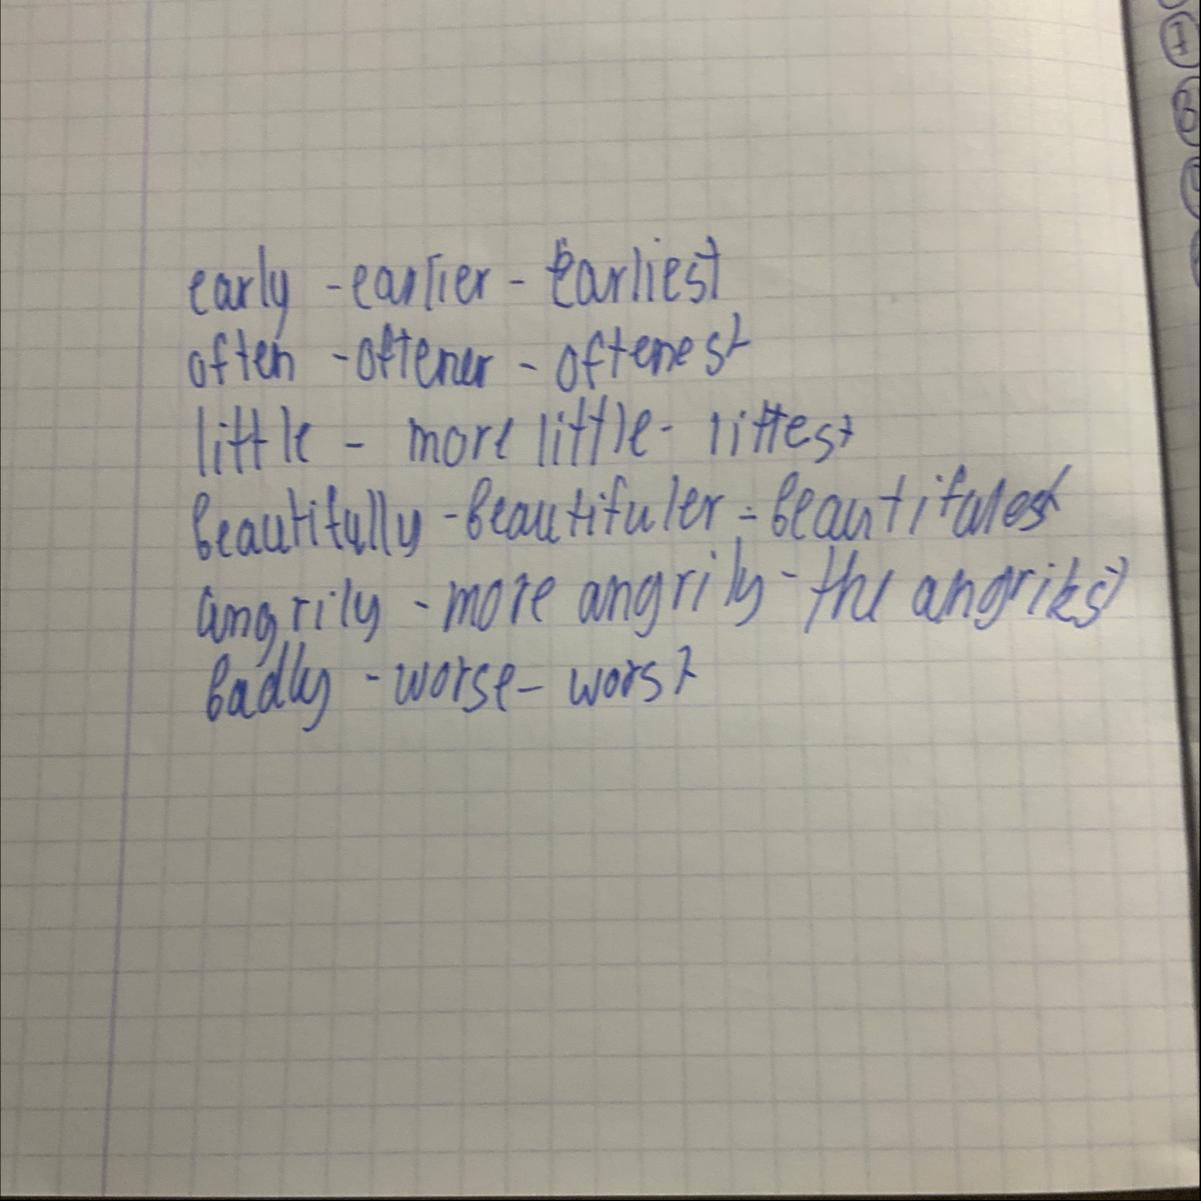 early - earlier - Earliest
often - oftener - oftenest
little - more little - littest
beautifully - beautifuler - beautifulest
angrily - more angrily - the angriest
badly - worse - worst